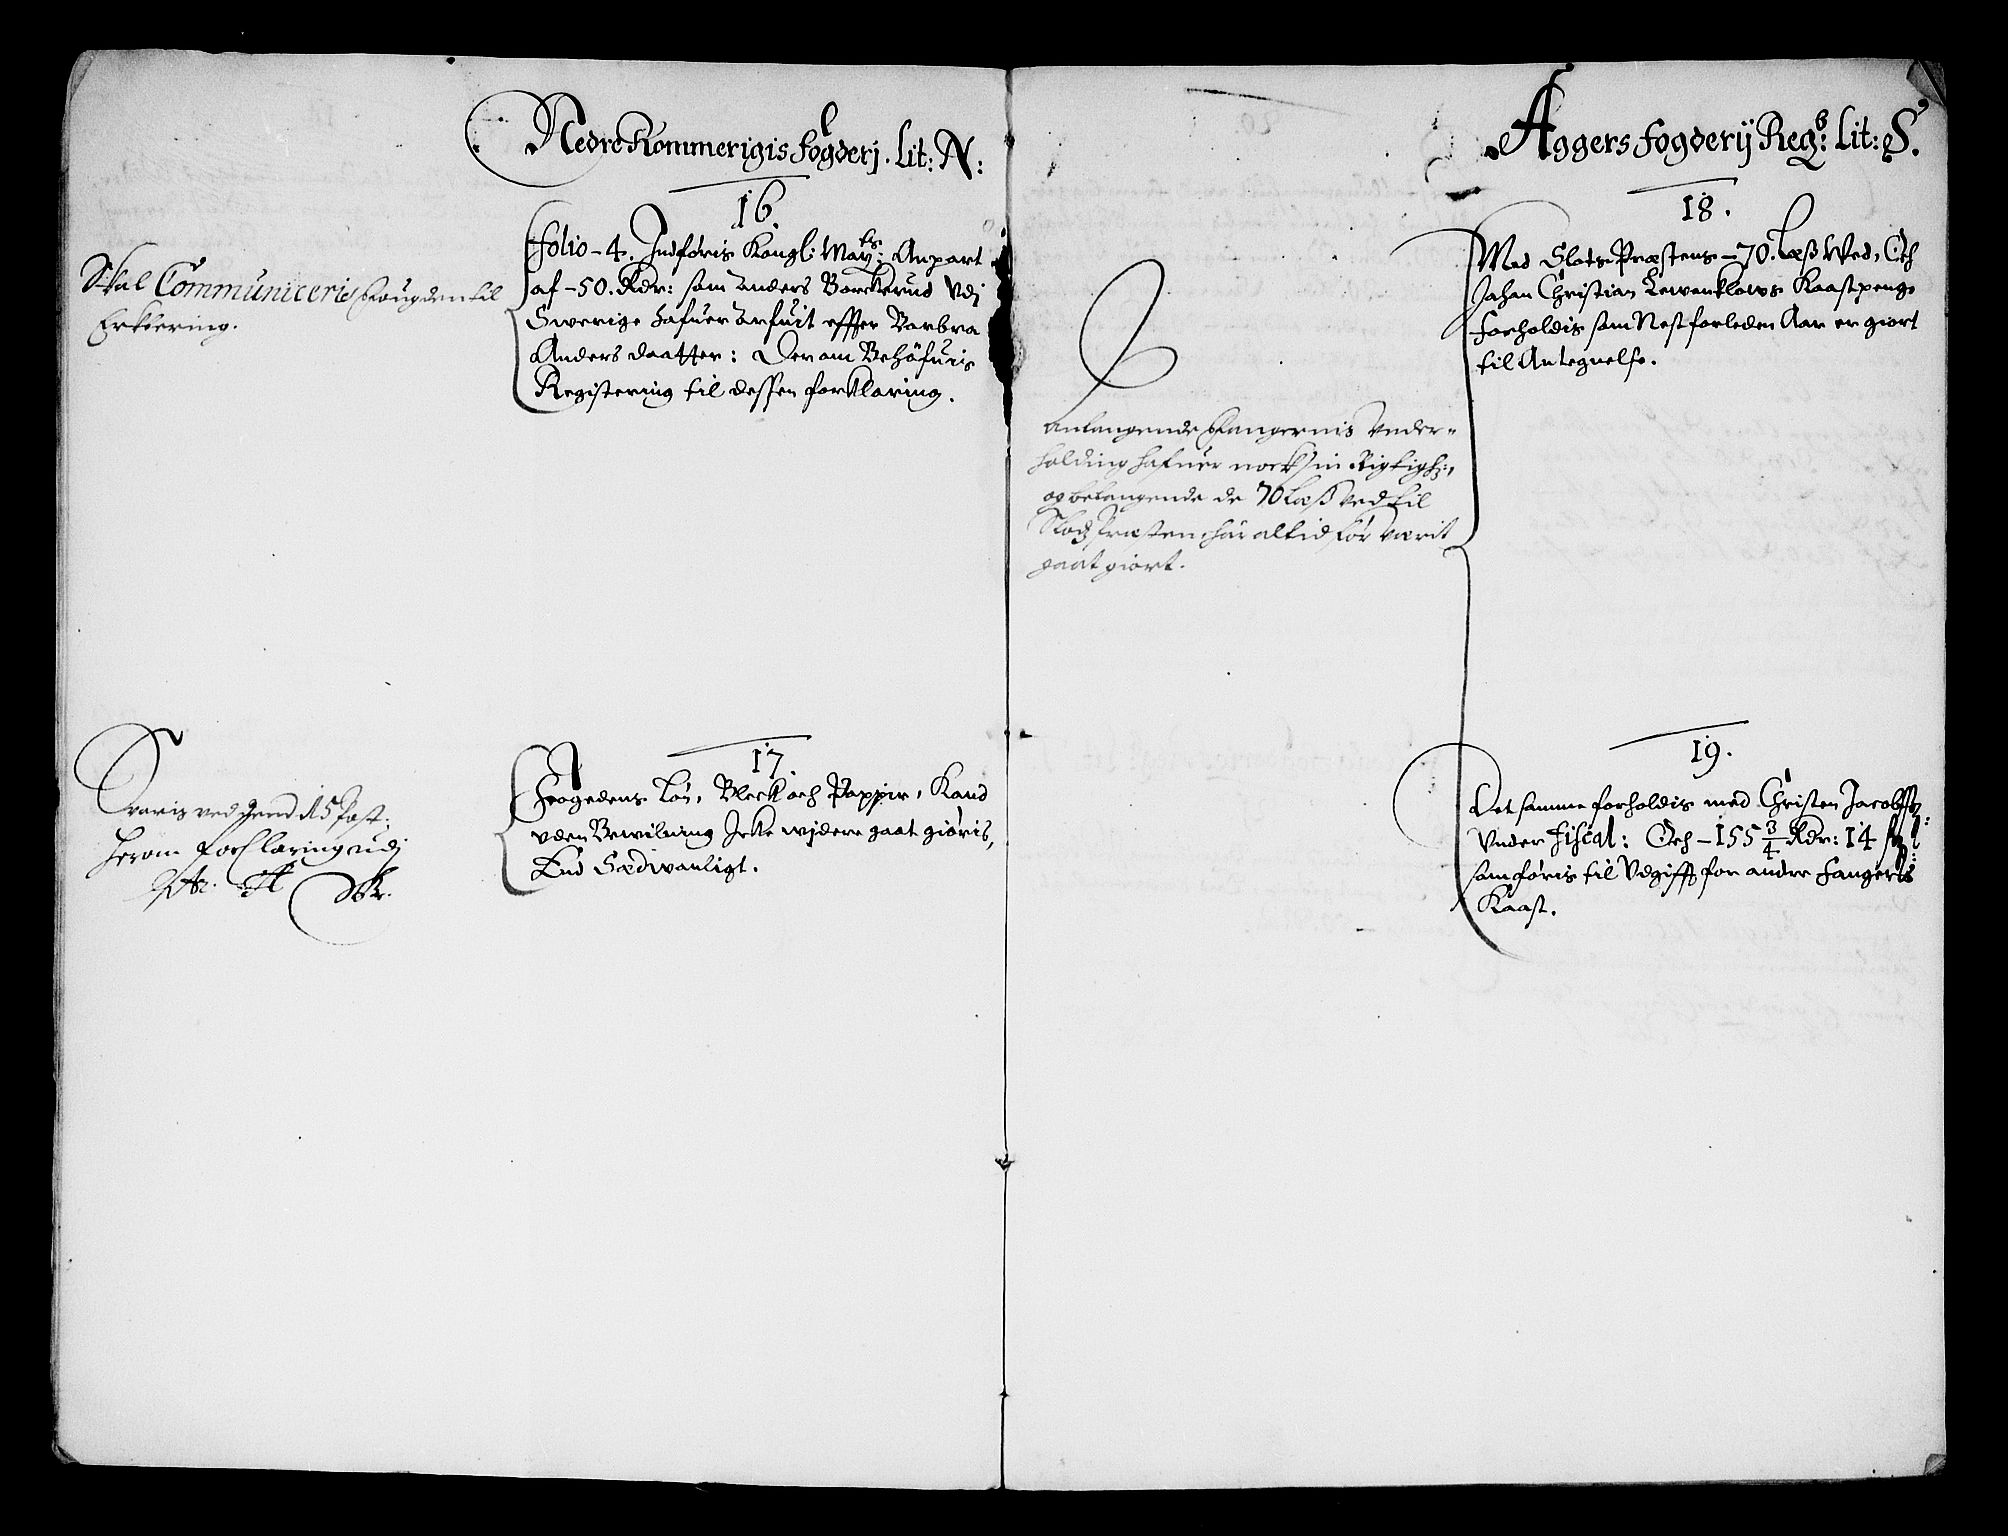 Nedre Rommerigis fogderj. Lit: N:
16
folio - 4. Indføris Kongl: May:ts Anpart
af - 50. Rdr: som Anders Borckerud Vdj
Swerige hafuer arfuit effter Barbra
Anders daatter: Der om Behøfuis
Registering til dessen forklaring.
Skal Communiceris fougden til
Erklering.
17
Fogedens Løn, Bleck och Pappir, Kand
vden Bewilning Icke wjdere gaat giøris,
End Sædwanligt.
Svaris ved 15 Post.
herom forklaring udj
Aggers fogderij Reg: Lit: S.
18.
Med Slots Præstens - 70. Læß Wed, Och
Johan Christian Lewenklows Kaastpenge
forholdis som Nest forleden Aar er giort
til Antegnelse.
anlangende fangernis Vnder-
holding hafuer nock sin Rigtigh:,
og belangende de 70 Læß ved til
Slotz Præsten, har altid før værit
gaat giort.
19.
Det samme forholdis med Christen Jacobß:
Vnder fiscal: Och - 155 3/4 Rdr: 14 ſ:
som føris til Vdgifft for andre Fangers
Kaast.